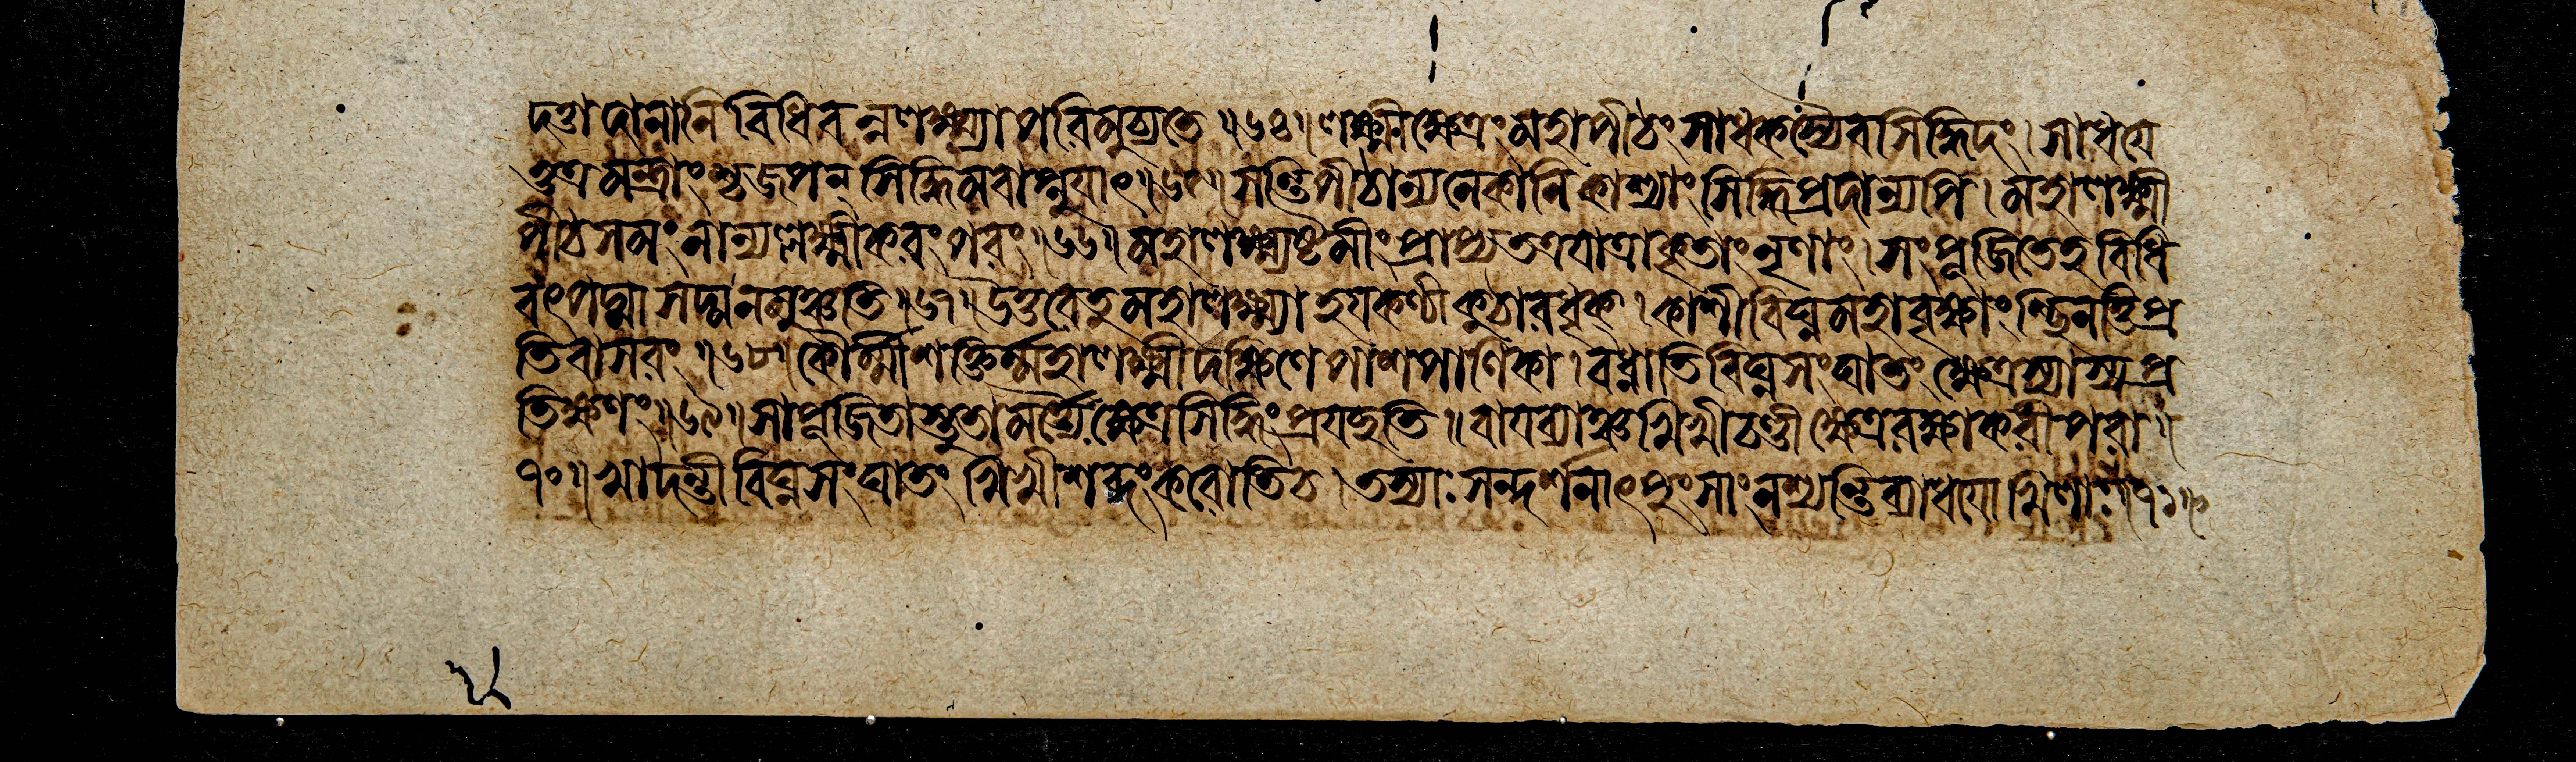 দত্ত্বা দানানি বিধিবন্নলক্ষ্ম্যা পরিমুচ্যতে ॥৬৪॥ লক্ষ্মীক্ষেত্রং মহাপীঠং সাধকস্যৈব সিদ্ধিদং। সাধয়ে
ত্তত্র মন্ত্রাংশ্চ জপন্ সিদ্ধিমবাপ্নুয়াৎ॥৬৫॥ সন্তি পীঠান্যনেকানি কাশ্যাং সিদ্ধিপ্রদান্যপি। মহালক্ষ্মী
পীঠসমং নান্যল্লক্ষ্মীকরং পরং॥৬৬॥ মহালক্ষ্ম্যষ্টমীং প্রাপ্য তত্র যাত্রাকৃতাং নৃণাং। সংপূজিতেহ বিধি
বৎ পদ্মা সদ্ম ন মুঞ্চতি॥৬৭॥ উত্তরে তু মহালক্ষ্ম্যা হয়কণ্ঠী কুঠারধৃক্। কাশীবিঘ্নমহাবৃক্ষাংশ্ছিনত্তি প্র
তিবাসরং॥৬৮॥ কৌর্ম্মী শক্তির্ম্মহালক্ষ্মী দক্ষিণে পাশপাণিকা। বধ্নাতি বিঘ্নসংঘাতং ক্ষেত্রস্যাস্য প্র
তিক্ষণং॥৬৯॥ সা পূজিতা স্তুতা মর্ত্যৈঃ ক্ষেত্রসিদ্ধিং প্রযচ্ছতি॥ বায়ব্যাঞ্চ শিখীচণ্ডী ক্ষেত্ররক্ষাকরী পরা॥
৭০॥ খাদন্তী বিঘ্নসংঘাতং শিখীশব্দং করোতি চ। তস্যাঃ সন্দর্শনাৎ পুংসাং নশ্যন্তি ব্যাধয়োখিলাঃ॥৭১॥